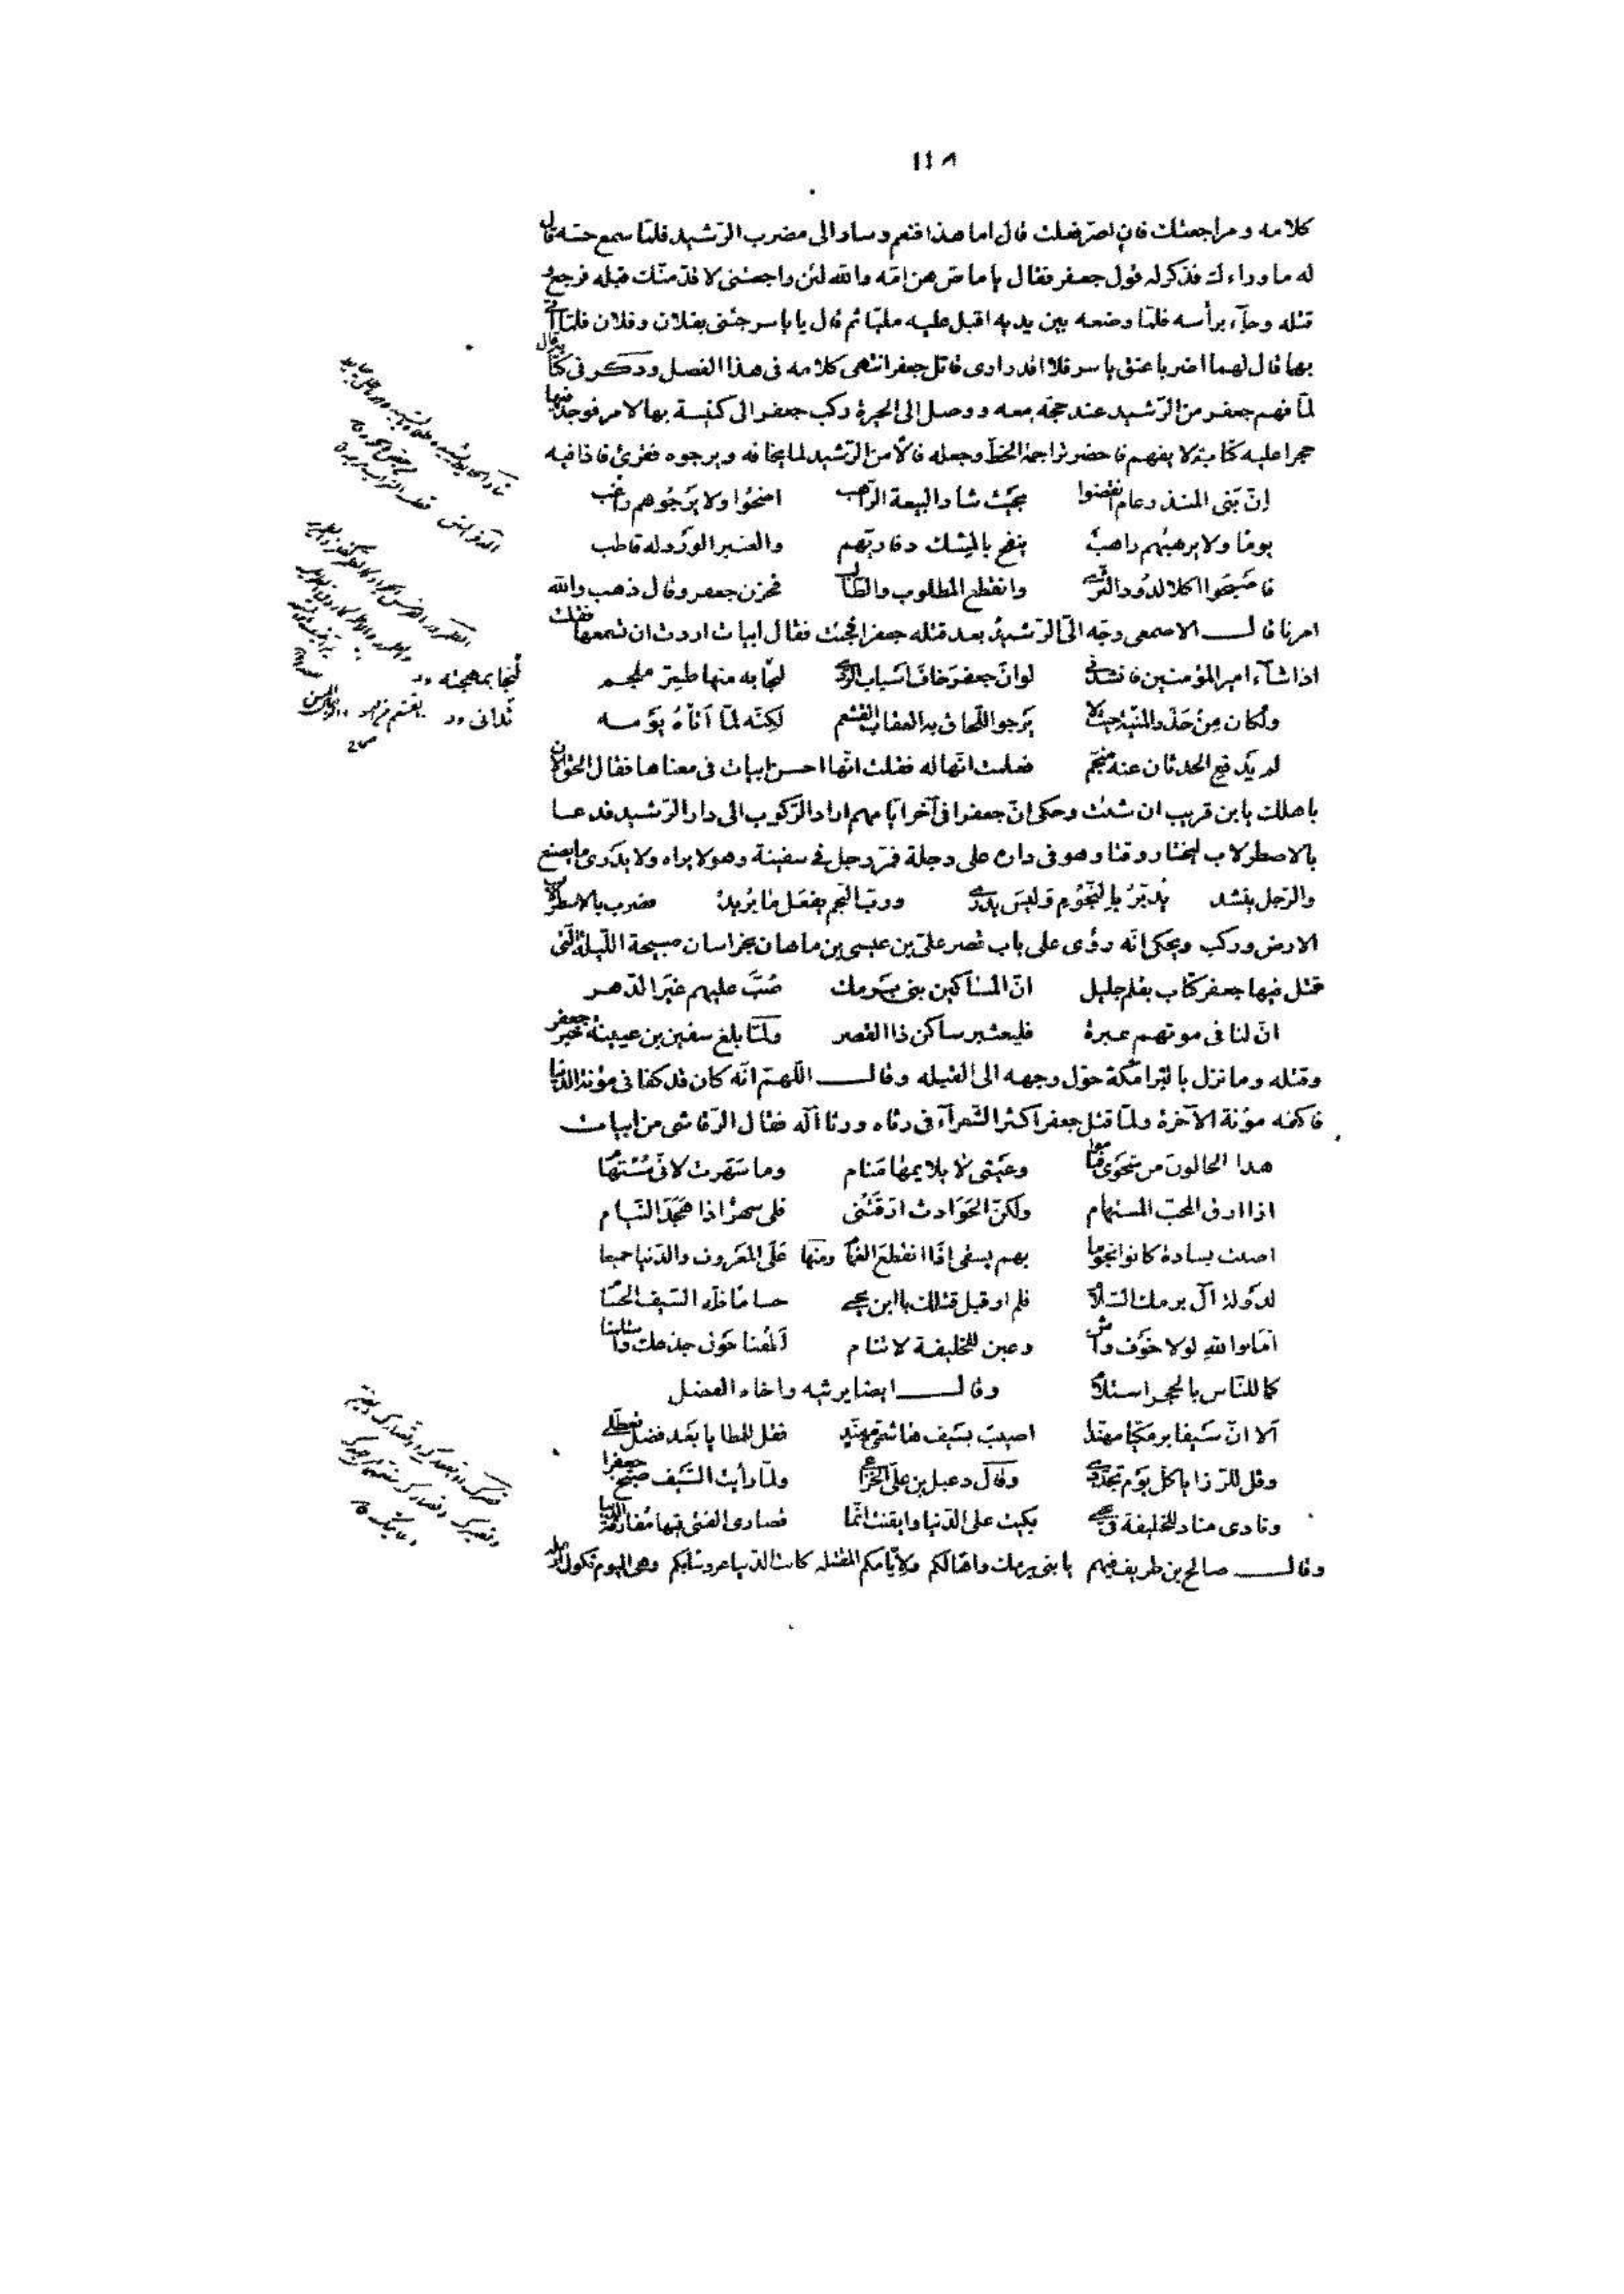 ١١٨
كلامه ومراجعتك فان اصرّ فعلت قال اما هذا فنعم وسار الى مضرب الرّشيد فلمّا سمع حسّه قال
له ما وراءك فذكر له قول جعفر فقال يا ماصّ هن امّه والله لئن راجعتنى لاقدّمنّك قبله فرجع و
قتله وجآء برأسه فلمّا وضعه بين يديه اقبل عليه مليّا ثم قال يا ياسر جئنى بفلان وفلان فلمّا اتى
بهما قال لهما اضربا عنق ياسر فلا اقدر ارى قاتل جعفر انتهى كلامه فى هذا الفصل وذكر فى كتابه قال
لمّا فهم جعفر من الرّشيد عند حجّه معه ووصل الى الحيرة ركب جعفر الى كنيسة بها لامر فوجد فيها
حجرا عليه كتابة لا يفهم فاحضر تراجمة الخطّ وجعله فالا من الرّشيد لما يخافه ويرجوه فقرئ فاذا فيه
انّ بَنى المنذر عام انقضوا بحَيْث شاد البيعة الرّاهب اضحَوْا ولا يَرْجُوهم راغب
يومًا ولا يرهبهم راهبٌ ينفح بالمِسْك ذفاريهم والعنبر الوَرْد له قاطب
فاصْبَحوا اكلا لدُود الثّرى وانقطع المطلوب والطّالب فحزن جعفر وقال ذهب والله
امرنا قال الاصمعى وجّه الىّ الرّشيد بعد قتله جعفرا فجئت فقال ابيات اردت ان تسمعها فقلت
اذا شآء امير المؤمنين فانشدنى لو انّ جعفر خافَ اسْباب الرّدى لنجا به منها طمرّ ملجم
ولَكان مِنْ حَذَر المنيّة حيث لا يَرْجو اللّحاق به العقاب القشعم لكنّه لمّا اَتاهُ يَوْمه
لم يَدفع الحدثان عنه منجّم فعلمت انّها له فقلت انّها احسن ابيات فى معناها فقال الحق الآن
باهلك يا بن قريب ان شئت وحكى انّ جعفرا فى آخر ايّامهم اراد الرّكوب الى دار الرّشيد فدعا
بالاصطرلاب ليختار وقتا وهو فى داره على دجلة فمرّ رجل فى سفينة وهو لا يراه ولا يدرى ما يصنع
والرّجل ينشد يُدبّرُ بالنّجُومِ وَليْسَ يَدْرى وربّ النّجم يفعَل ما يُريدُ فضرب بالاصطرلاب
الارض وركب ويحكى انّه رؤى على باب قصر علىّ بن عيسى بن ماهان بخراسان صبيحة اللّيلة الّتى
قتل فيها جعفر كتاب بقلم جليل انّ المسَاكين بنى بَرمك صُبَّ عليهم غيَر الدّهر
انّ لنا فى موتهم عبرة فليعتبر ساكن ذا القصر ولمّا بلغ سفين بن عيينة خبر جعفر
وقتله وما نزل بالبرامكة حوّل وجهه الى القبله وقال اللّهمّ انّه كان قد كفانى مؤنة الدّنيا
فاكفه مؤنة الآخرة ولمّا قتل جعفر اكثر الشّعرآء فى رثاه ورثا آله فقال الرّقاشى من ابيات
هدا الخالون من شجوى فناموا وعَيْنى لا يلايمها مَنام وما سَهَرت لانّى مُسْتهام
اذا ارق المحبّ المستهام ولكنّ الحَوَادث ارّقَتْنى فلى سهر اذا هَجَدَ النّيام
اصبت بسادة كانوا نجوما بهم يسقى اذَا انقطعَ الغمام ومنها عَلَى المَعْروف والدّنيا جميعا
لدَوْلة آل برمك السّلام فلم ار قبل قتلك يا ابن يحيى حسامًا فلّه السّيف الحسام
اما والله لولا خَوْف واش وعين للخليفة لا تنام لَطُفنا حَوْل جذعك واستلمنا
كما للنّاس بالحجر استلام وقال ايضا يرثيه واخاه الفضل
اَلا انّ سَيفا برمكيّا مهنّدا اصيبَ بسَيف هاشمىّ مهنّدِ فقل للعطايا بَعْد فضل تعطّلى
وقل للرّزايا كلّ يَوْم تجدّدى وقال دعبل بن علىّ الخزاعى ولمّا رأيت السّيف صبّح جعفرا
ونادى مناد للخليفة فى يحيى بكيت على الدّنيا وايقنت انّما قصارى الفتى فيها مُفارقة الدّنيا
وقال صالح بن طريف فيهم يا بنى برمك واها لكم ولايّامكم المقتبله كانت الدّنيا عروسا بكم وهى اليوم ثكول ارمله
لنجا بمهجته